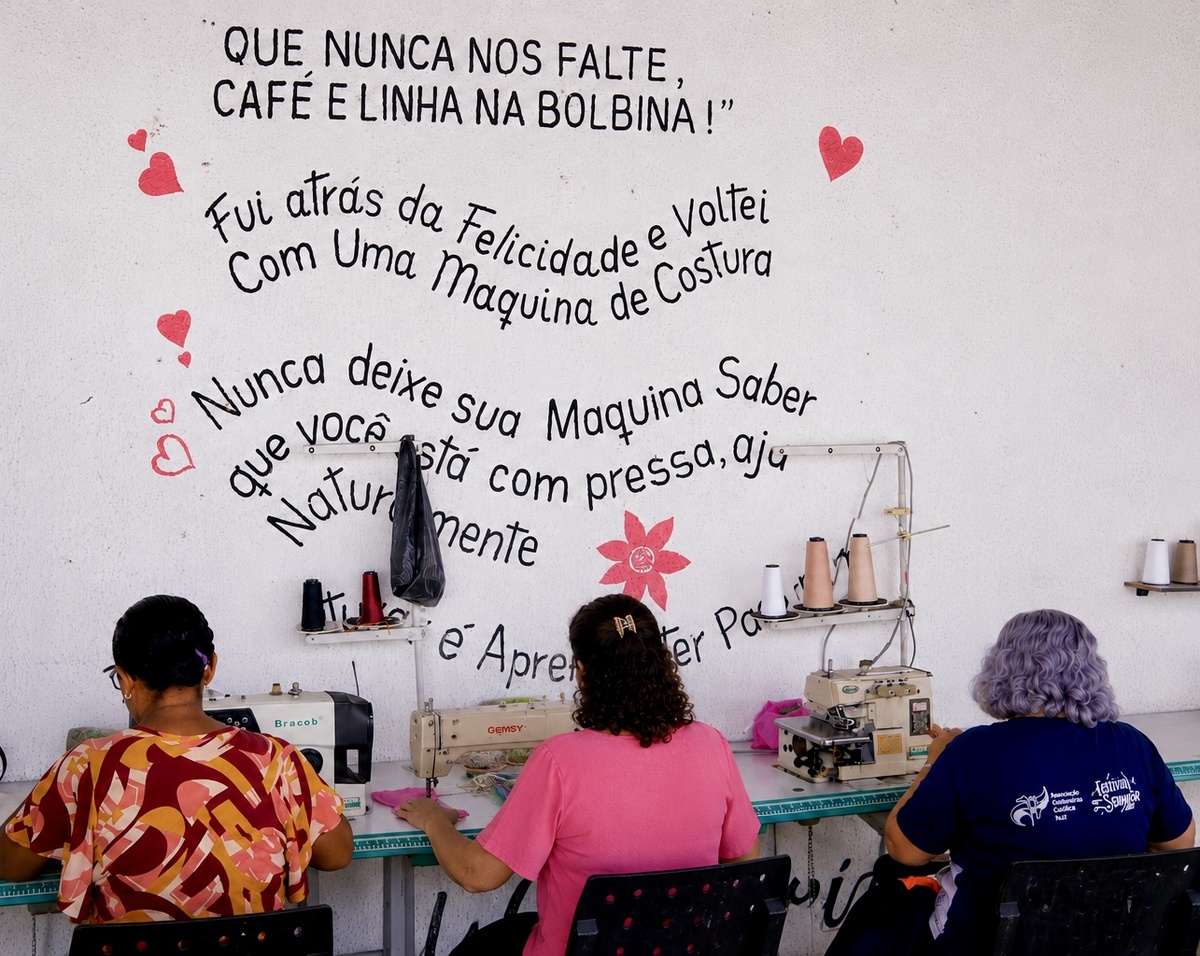 "QUE NUNCA NOS FALTE,
CAFÉ E LINHA NA BOLBINA!"
Fui atrás da Felicidade e Voltei
Com Uma Maquina de Costura
Nunca deixe sua Maquina Saber
que você está com pressa, aja
Naturalmente
é
Bracob
GEMSY
Associação
Costureiras
Festival